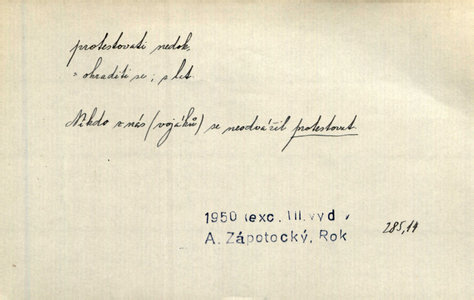 protestovati nedok.
= ohraditi se; s let
Nikdo z nás (vojáků) se neodvážil protestovat.
1950 (exc. III. vyd.)
A. Zápotocký, Rok
285,14